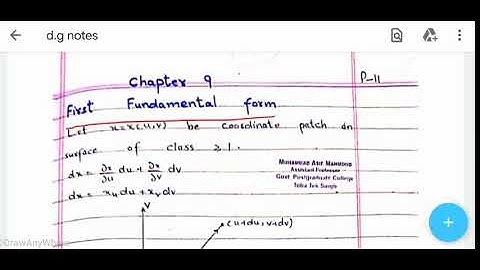 d.g notes
Chapter 9
P-11
First Fundamental form
Let x=x(u,v) be coordinate patch on
surface of class ≥1.
MUHAMMAD ASIF MAHMOOD
Assistant Professor
Govt Postgraduate College
Toba Tek Singh
dx = ∂x/∂u du + ∂x/∂v dv
dx = xu du + xv dv
V
(u+du, v+dv)
DrawAnyWhere